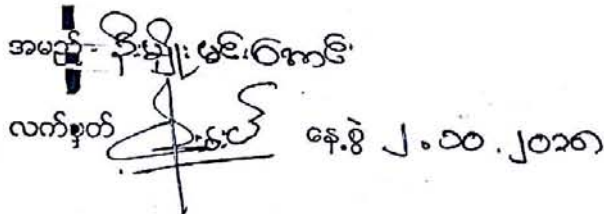 အမည် - ဦးမျိုးမင်းအောင်
လက်မှတ် နေ့စွဲ ၂.၁၀.၂၀၁၈